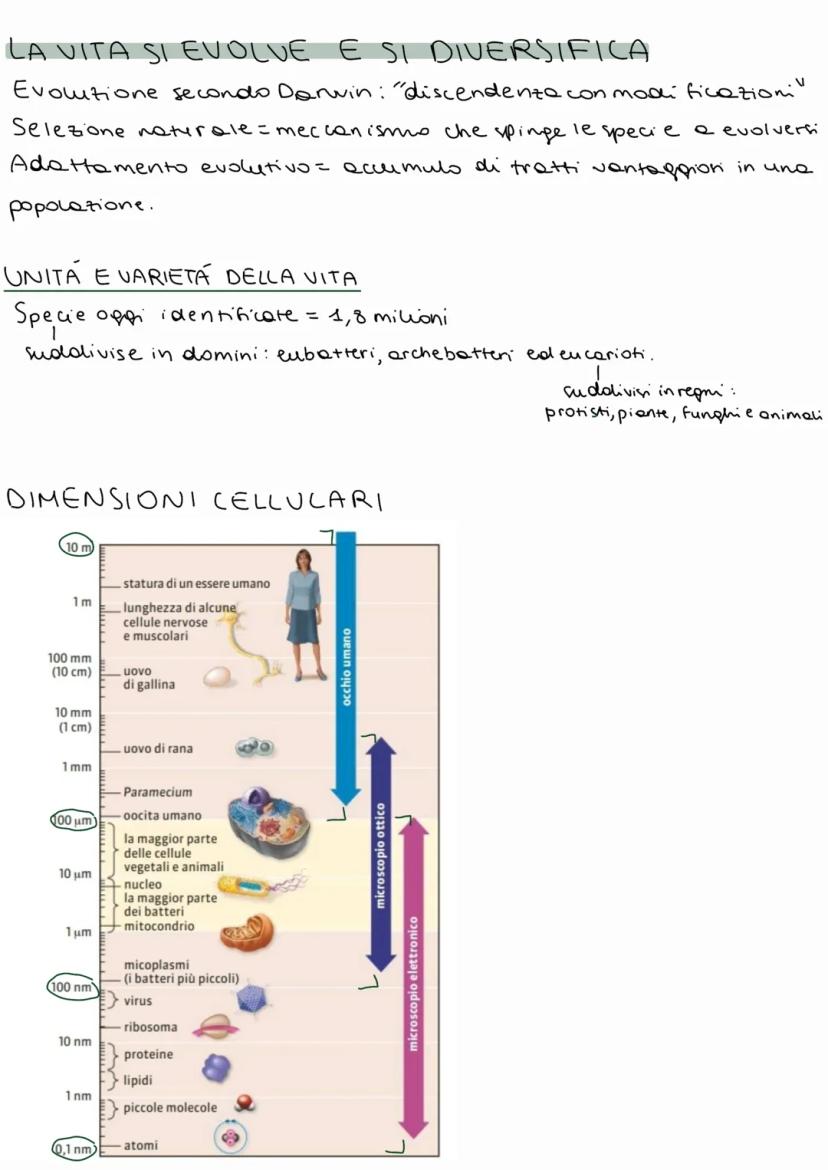 LA VITA SI EVOLVE E SI DIVERSIFICA
Evoluzione secondo Darwin: "discendenza con modificazioni"
Selezione naturale = meccanismo che spinge le specie a evolversi
Adattamento evolutivo = accumulo di tratti vantaggiosi in una
popolazione.
UNITÁ E VARIETÁ DELLA VITA
Specie oggi identificate = 1,8 milioni
suddivise in domini: eubatteri, archebatteri ed eucarioti.
suddivisi in regni:
protisti, piante, funghi e animali
DIMENSIONI CELLULARI
10 m
statura di un essere umano
1 m
lunghezza di alcune
cellule nervose
e muscolari
100 mm
(10 cm)
uovo
di gallina
10 mm
(1 cm)
uovo di rana
1 mm
Paramecium
oocita umano
100 µm
la maggior parte
delle cellule
vegetali e animali
10 µm
nucleo
la maggior parte
dei batteri
mitocondrio
1 µm
micoplasmi
(i batteri più piccoli)
100 nm
virus
ribosoma
10 nm
proteine
lipidi
1 nm
piccole molecole
0,1 nm
atomi
occhio umano
microscopio ottico
microscopio elettronico